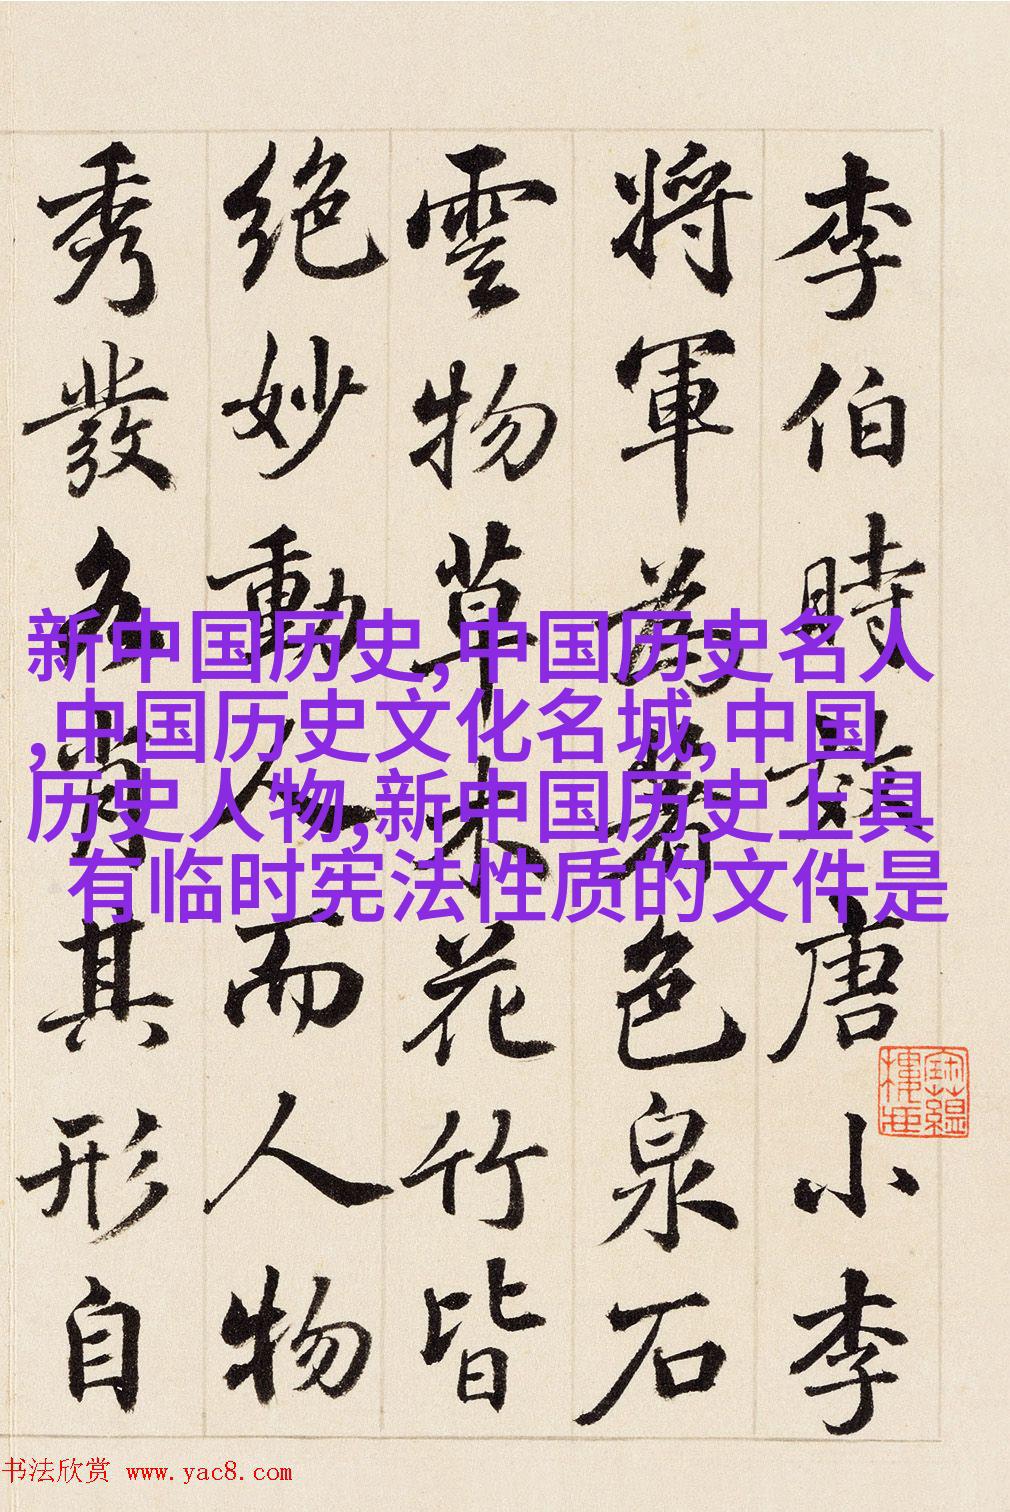 李伯時效唐小李
將軍為著色泉石
雲物草木花竹皆
絶妙動人而人物
秀發各肖其形自
新中国历史,中国历史名人
,中国历史文化名城,中国
历史人物,新中国历史上具
有临时宪法性质的文件是
书法欣赏 www.yac8.com